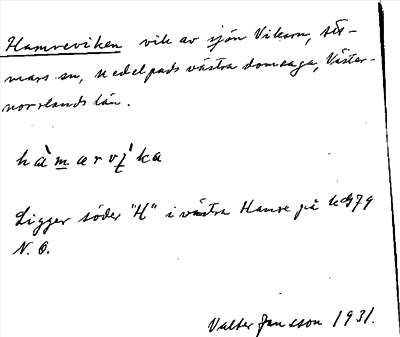 Hamreviken vik av sjön Vikarn, Att-
mars sn, Medelpads västra domsaga, Väster-
norrlands län.
hàmarvika
Ligger söder "H" i västra Hamre på
N. O.
Valter Jansson 1931.